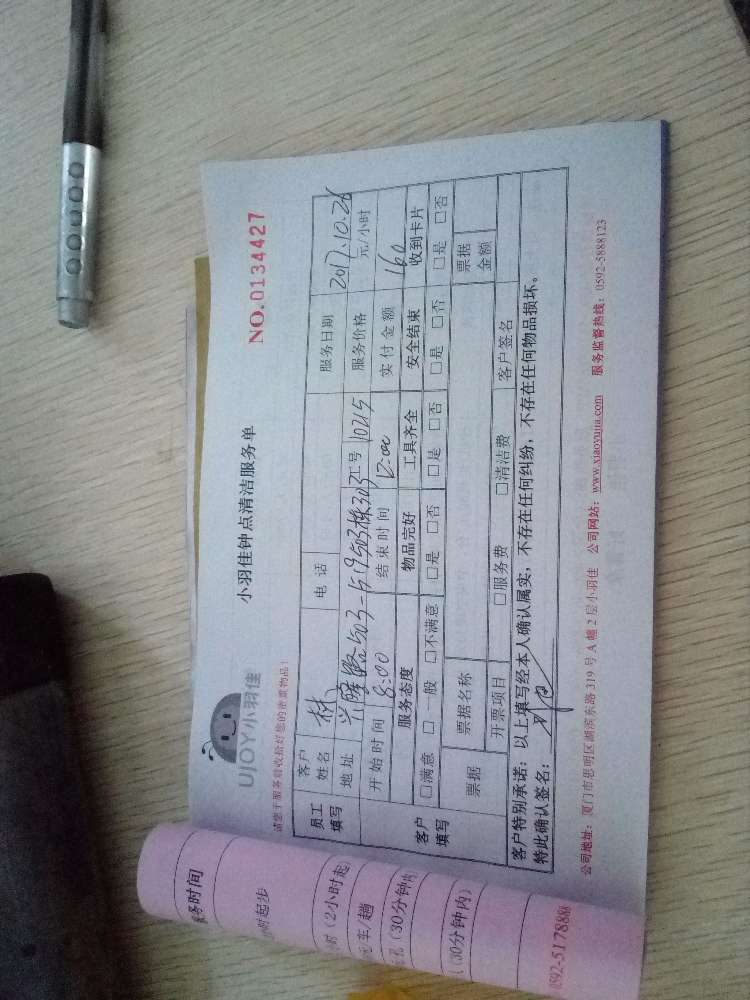 UJOY小羽佳
小羽佳钟点清洁服务单
NO.0134427
请您于服务前收拾好您的贵重物品!
员工填写 客户姓名 林 电话 服务日期 2017.10.26
地址 工号 10215 服务价格 元/小时
开始时间 8:00 结束时间 12:00 实付金额 160
客户填写 服务态度 物品完好 工具齐全 安全结束 收到卡片
□满意 □一般 □不满意 □是 □否 □是 □否 □是 □否 □是 □否
票据 票据名称 票据金额
开票项目 □服务费 □清洁费 客户签名
客户特别承诺:以上填写经本人确认属实,不存在任何纠纷,不存在任何物品损坏。
特此确认签名:
公司地址:厦门市思明区湖滨东路319号A幢2层小羽佳 公司网站:www.xiaoyujia.com 服务监督热线:0592-5888123
务时间
时起步
时(2小时起)
元/车/趟
(30分钟内)
(30分钟内)
0592-5178888